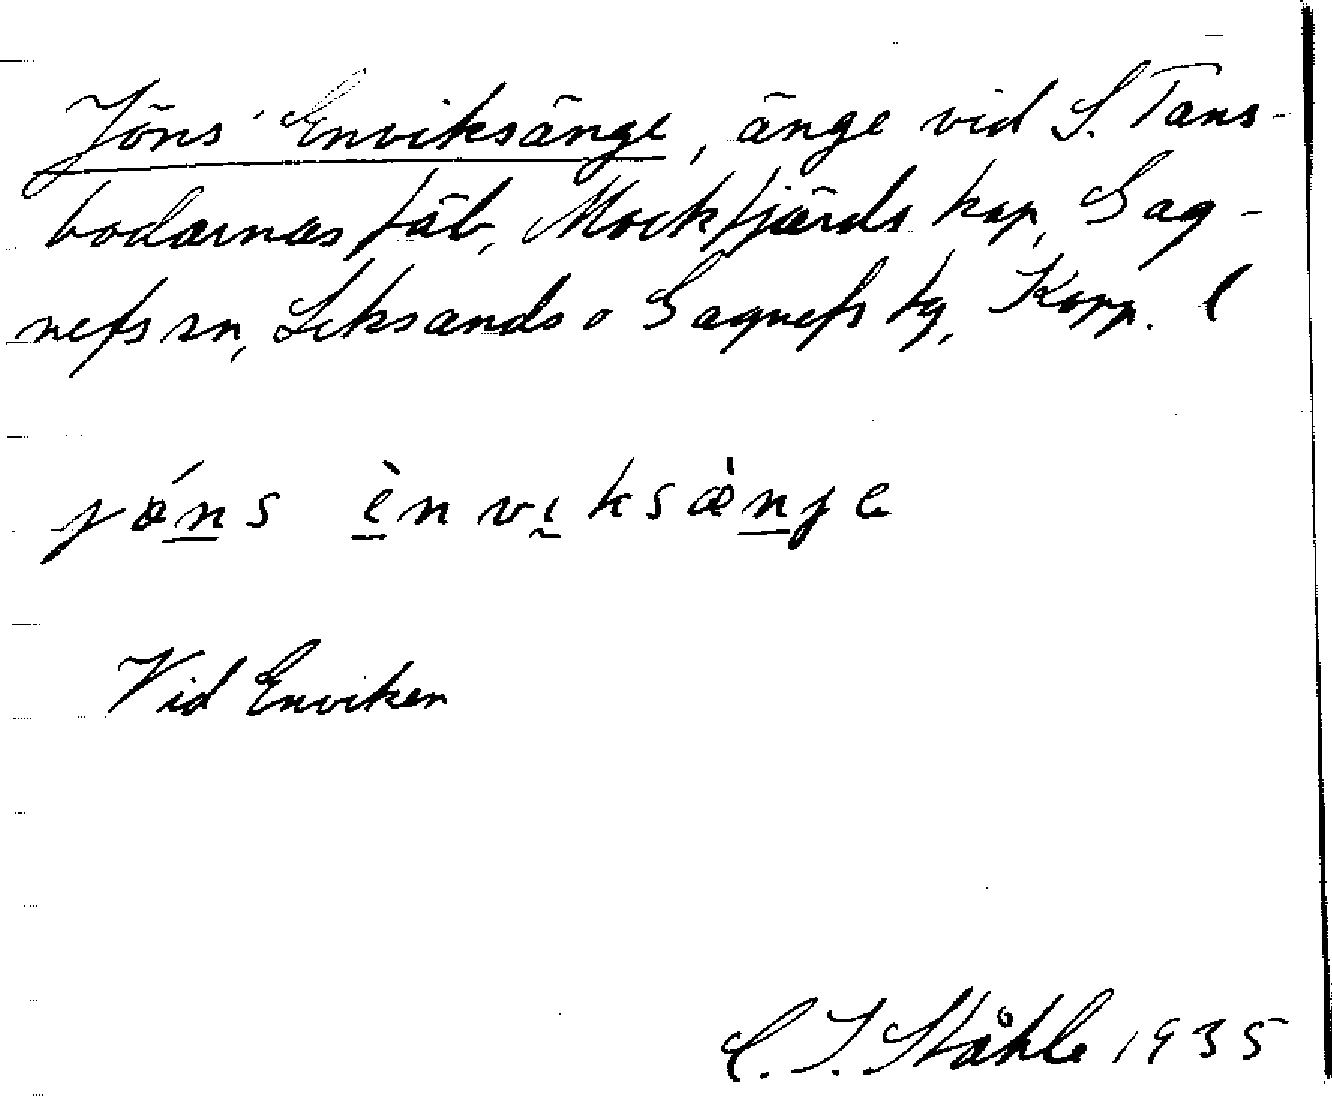 Jöns Enviksänge, änge vid S. Tans-
bodarnas fäb, Mockfjärds kap, Gag-
nefs sn, Leksands o Gagnefs tg, Kopp. l
jöns ènviksæ̀nje
Vid Enviken
C. I. Ståhle 1935